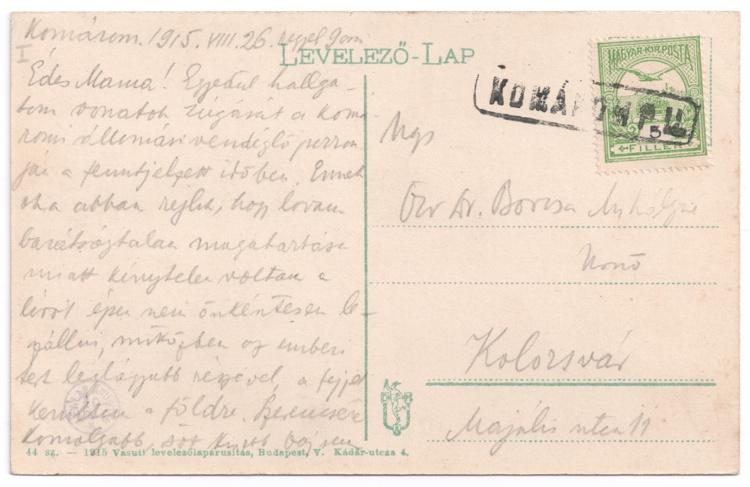 Komárom. 1915. VIII. 26. reggel 9
I
LEVELEZŐ-LAP
Édes Mama! Egyedül hallga-
tom vonatok zúgását a komá-
romi állomási vendéglő perron-
ján a fenntjelzett időben. Ennek
oka abban rejlik, hogy lovam
barátságtalan magatartása
miatt kénytelen voltam a
lóról épen nem önkéntesen le-
szállni, miközben az emberi
test leglágyabb részével, a fejjel
kerültem a földre. Szerencsére
komolyabb, sőt
MAGYAR KIR. POSTA
5
FILLÉR
KOMÁROM P.U.
Ngs
Özv Dr. Borcsa Mihályné
Úrnő
Kolozsvár
Majális utca 11
44 sz. — 1915 Vasuti levelezőlapárusitás, Budapest, V. Kádár-utcza 4.